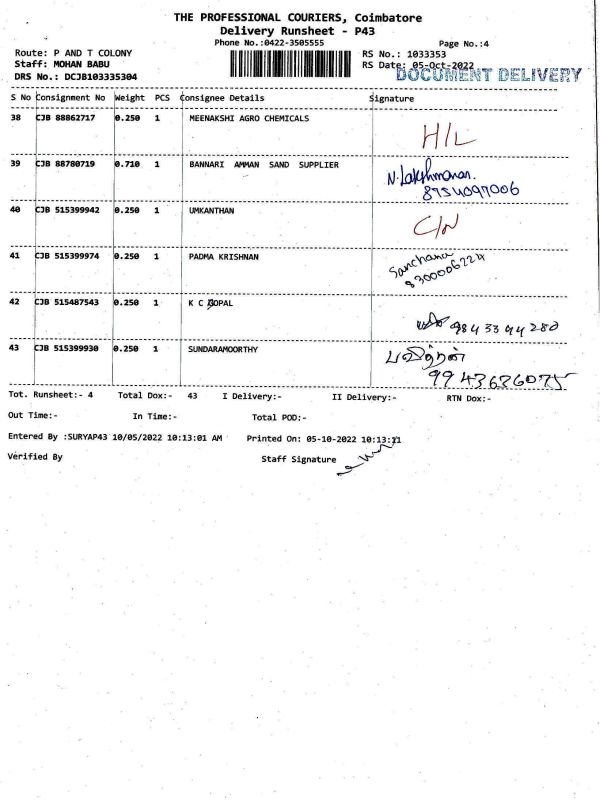 THE PROFESSIONAL COURIERS, Coimbatore
Delivery Runsheet - P43
Phone No.:0422-3505555
Page No.:4
Route: P AND T COLONY
RS No.: 1033353
Staff: MOHAN BABU
RS Date: 05-Oct-2022
DRS No.: DCJB103335304
DOCUMENT DELIVERY
S No Consignment No Weight PCS Consignee Details Signature
38 CJB 88862717 0.250 1 MEENAKSHI AGRO CHEMICALS
H/L
39 CJB 88780719 0.710 1 BANNARI AMMAN SAND SUPPLIER
N. Lakshmanan.
8754097006
40 CJB 515399942 0.250 1 UMKANTHAN
C/N
41 CJB 515399974 0.250 1 PADMA KRISHNAN
Sanchana
8300006224
42 CJB 515487543 0.250 1 K C GOPAL
9843394280
43 CJB 515399930 0.250 1 SUNDARAMOORTHY
9943636075
Tot. Runsheet:- 4 Total Dox:- 43 I Delivery:- II Delivery:- RTN Dox:-
Out Time:- In Time:- Total POD:-
Entered By :SURYAP43 10/05/2022 10:13:01 AM Printed On: 05-10-2022 10:13:11
Verified By Staff Signature